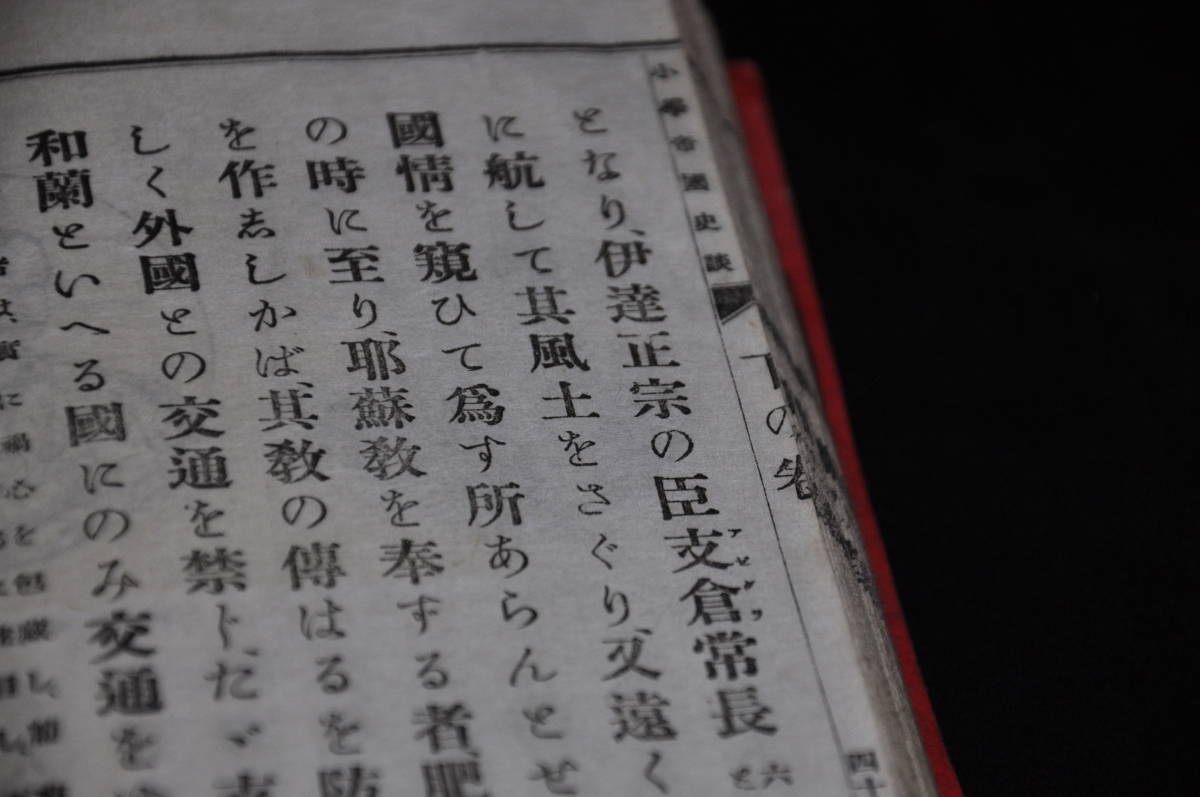 小學帝國史談
下の先
四十
となり、伊達正宗の臣支倉常長
に航して其風土をさぐり、又遠く
國情を窺ひて爲す所あらんとせ
の時に至り、耶蘇敎を奉ずる者、肥
を作志しかば、其敎の傳はるを防
しく外國との交通を禁ト、たゞ
和蘭といへる國にのみ交通を